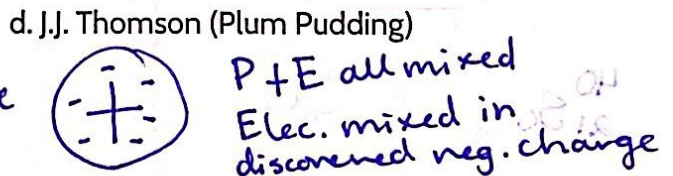 d. J.J. Thomson (Plum Pudding)
P + E all mixed
Elec. mixed in
discovered neg. charge